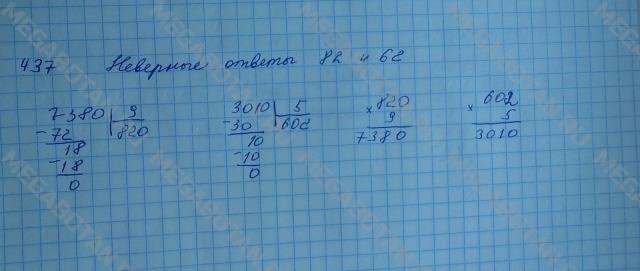 437 Неверные ответы 82 и 62
7380 9 3010 5 ×820 ×602
-72 820 -30 602 9 5
18 10 7380 3010
-18 -10
0 0